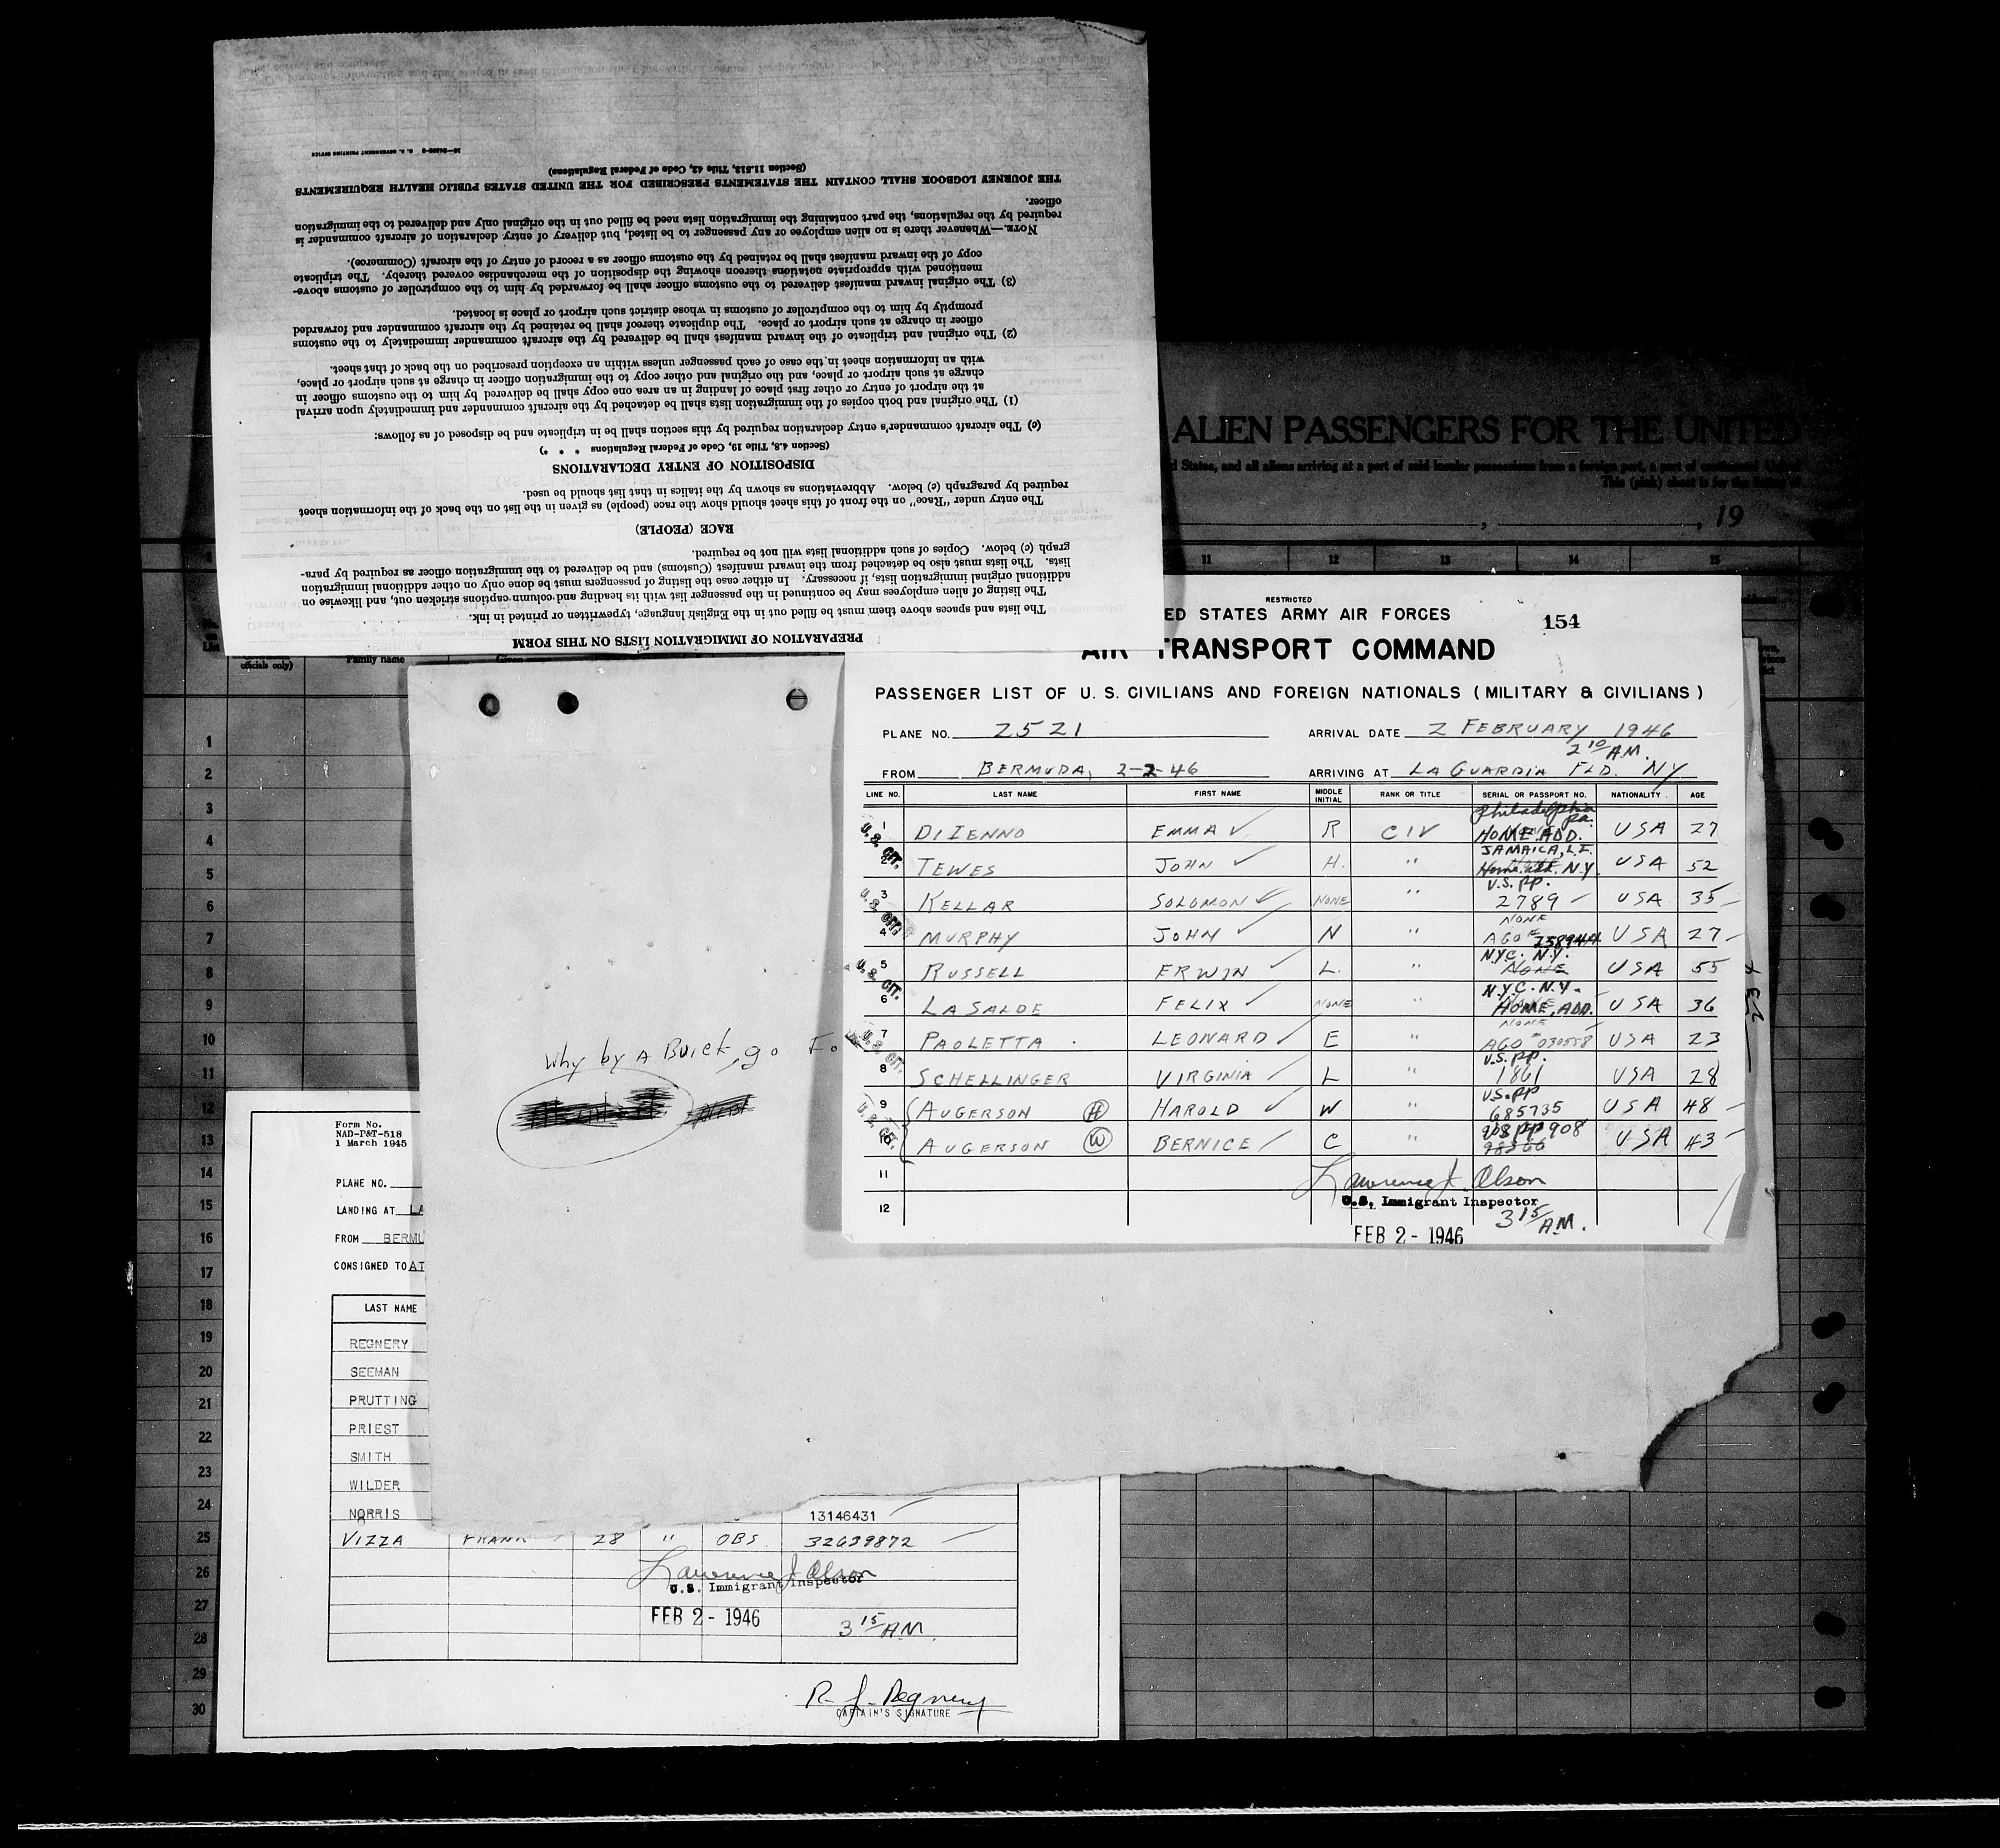 PREPARATION OF IMMIGRATION LISTS ON THIS FORM
The lists and spaces above them must be filled out in the English language, typewritten or printed in ink.
The listing of alien employees may be continued in the passenger list with its heading and column captions stricken out, and likewise on
additional original immigration lists, if necessary. In either case the listing of passengers must be done only on other additional immigration
lists. The lists must also be detached from the inward manifest (Customs) and be delivered to the immigration officer as required by para-
graph (c) below. Copies of such additional lists will not be required.
RACE (PEOPLE)
The entry under "Race" on the front of this sheet should show the race (people) as given in the list on the back of the information sheet
required by paragraph (c) below. Abbreviations as shown by the italics in that list should be used.
DISPOSITION OF ENTRY DECLARATIONS
(Section 4.8, Title 19, Code of Federal Regulations * * *)
(c) The aircraft commander's entry declaration required by this section shall be in triplicate and be disposed of as follows:
(1) The original and both copies of the immigration lists shall be detached by the aircraft commander and immediately upon arrival
at the airport of entry or other first place of landing in an area one copy shall be delivered by him to the customs officer in
charge at such airport or place, and the original and other copy to the immigration officer in charge at such airport or place,
with an information sheet in the case of each passenger unless within an exception prescribed on the back of that sheet.
(2) The original and triplicate of the inward manifest shall be delivered by the aircraft commander immediately to the customs
officer in charge at such airport or place. The duplicate thereof shall be retained by the aircraft commander and forwarded
promptly by him to the comptroller of customs in whose district such airport or place is located.
(3) The original inward manifest delivered to the customs officer shall be forwarded by him to the comptroller of customs above-
mentioned with appropriate notations thereon showing the disposition of the merchandise covered thereby. The triplicate
copy of the inward manifest shall be retained by the customs officer as a record of entry of the aircraft (Commerce).
NOTE.—Whenever there is no alien employee or any passenger to be listed, but delivery of entry declaration of aircraft commander is
required by the regulations, the part containing the immigration lists need be filled out in the original only and delivered to the immigration
officer.
THE JOURNEY LOGBOOK SHALL CONTAIN THE STATEMENTS PRESCRIBED FOR THE UNITED STATES PUBLIC HEALTH REQUIREMENTS
(Section 11.513, Title 42, Code of Federal Regulations)
U. S. GOVERNMENT PRINTING OFFICE
ALIEN PASSENGERS FOR THE UNITED
d States, and all aliens arriving at a port of said insular possessions from a foreign port, a port of continental United
This (pink) sheet is for the listing of
, , 19
11 12 13 14 15
officials only) Family name
RESTRICTED
ED STATES ARMY AIR FORCES 154
AIR TRANSPORT COMMAND
PASSENGER LIST OF U. S. CIVILIANS AND FOREIGN NATIONALS ( MILITARY & CIVILIANS )
PLANE NO. 2521 ARRIVAL DATE 2 FEBRUARY 1946
2 10 AM.
FROM BERMUDA, 2-2-46 ARRIVING AT LA GUARDIA FLD. NY
LINE NO. LAST NAME FIRST NAME MIDDLE INITIAL RANK OR TITLE SERIAL OR PASSPORT NO. NATIONALITY AGE
Philadelphia Pa.
1 DIIENNO EMMA ✓ R CIV HOME ADD. USA 27
JAMAICA, L.I.
2 TEWES JOHN ✓ H. " Home add. N.Y. USA 52
U.S. PP.
3 KELLAR SOLOMON ✓ NONE " 2789 USA 35
NONE
4 MURPHY JOHN ✓ N " AGO # 25894A USA 27
NYC. N.Y.
5 RUSSELL ERWIN ✓ L. " NONE USA 55
N.Y.C. N.Y.
6 LASALDE FELIX ✓ NONE " HOME ADD. USA 36
NONE
7 PAOLETTA LEONARD ✓ E " AGO # 030558 USA 23
U.S. PP.
8 SCHELLINGER VIRGINIA L " 1861 USA 28
U.S. PP
9 AUGERSON (H) HAROLD ✓ W " 685735 USA 48
US PP 908
10 AUGERSON (W) BERNICE C " 98366 USA 43
11
12
U.S. CIT.
U.S. CIT.
U.S. CIT.
U.S. CIT.
U.S. CIT.
Lawrence J. Olson
U.S. Immigrant Inspector
3 15 AM.
FEB 2 - 1946
Why by A Buick, go Fo
Form No.
NAD-P&T-518
1 March 1945
PLANE NO.
LANDING AT LA
FROM BERMU
CONSIGNED TO AT
LAST NAME
REGNERY
SEEMAN
PRUTTING
PRIEST
SMITH
WILDER
NORRIS 13146431
VIZZA FRANK 28 " OBS 32639872
Lawrence J. Olson
U.S. Immigrant Inspector
FEB 2 - 1946 3 15 AM.
R. J. Regnery
CAPTAIN'S SIGNATURE
1
2
3
4
5
6
7
8
9
10
11
12
13
14
15
16
17
18
19
20
21
22
23
24
25
26
27
28
29
30